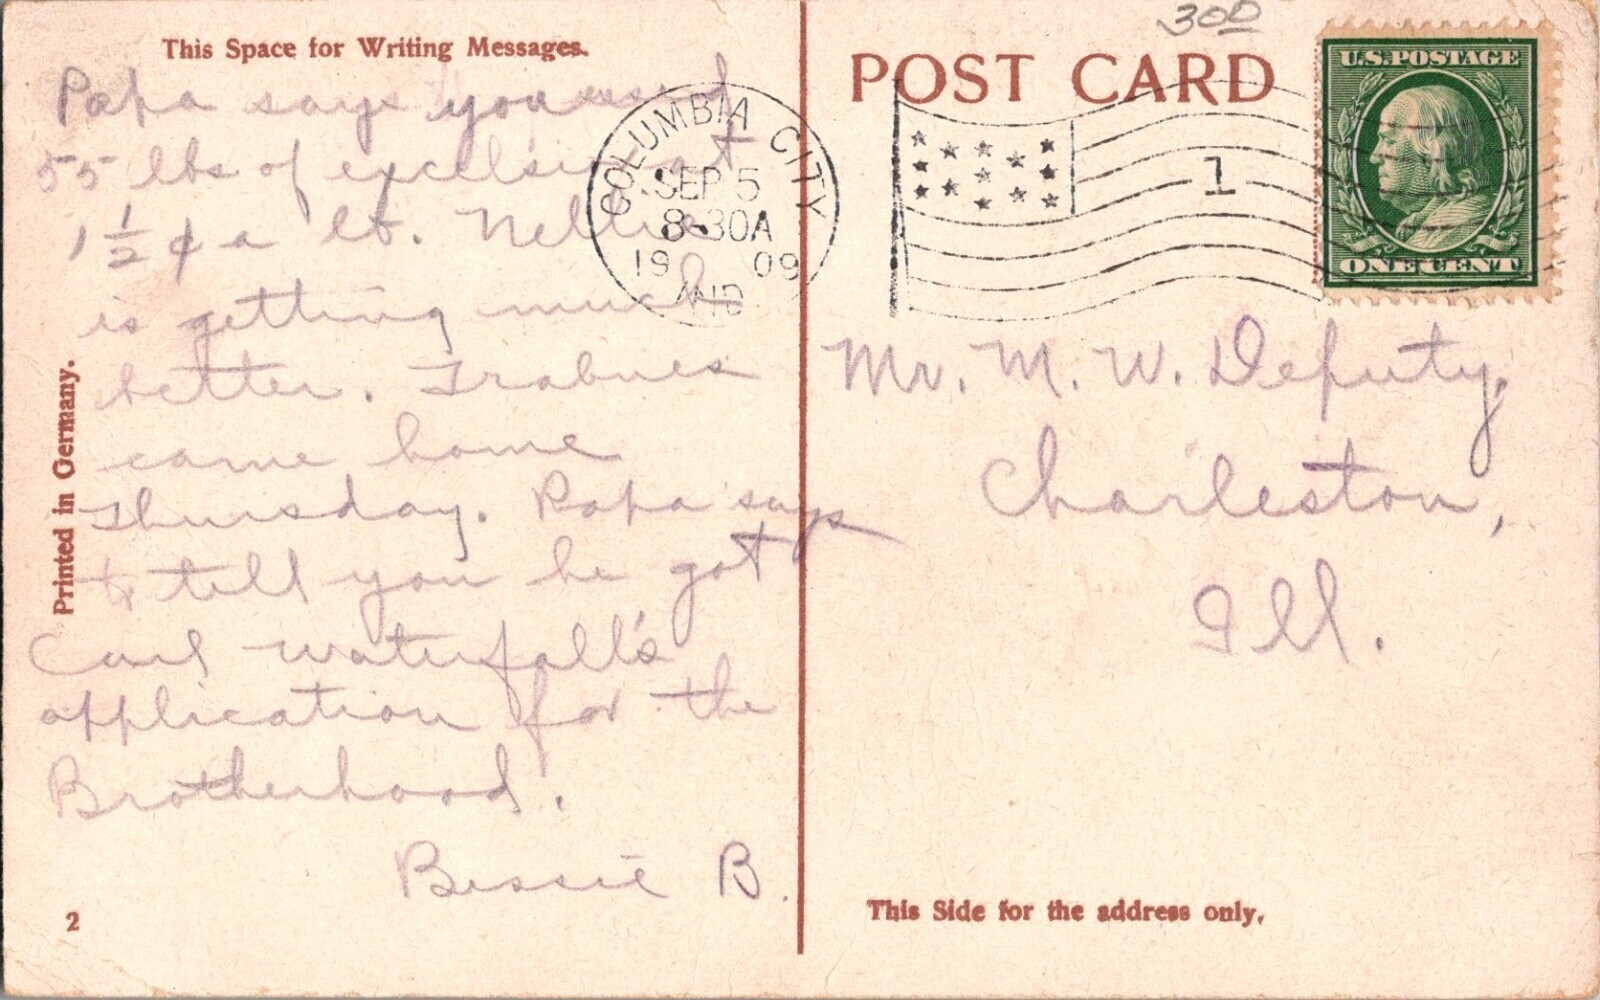 This Space for Writing Messages.
Papa says you used
55 lbs of excelsior at
1 1/2 ¢ a lb. Nellie
is getting much
better. Trabues
came home
Thursday. Papa says
to tell you he got
Carl Waterfall's
application for the
Brotherhood.
Bessie B.
Printed in Germany.
2
300
POST CARD
COLUMBIA CITY
SEP 5
8-30A
1909
IND
1
U.S. POSTAGE
ONE CENT
Mr. M. W. Deputy,
Charleston,
Ill.
This Side for the address only.